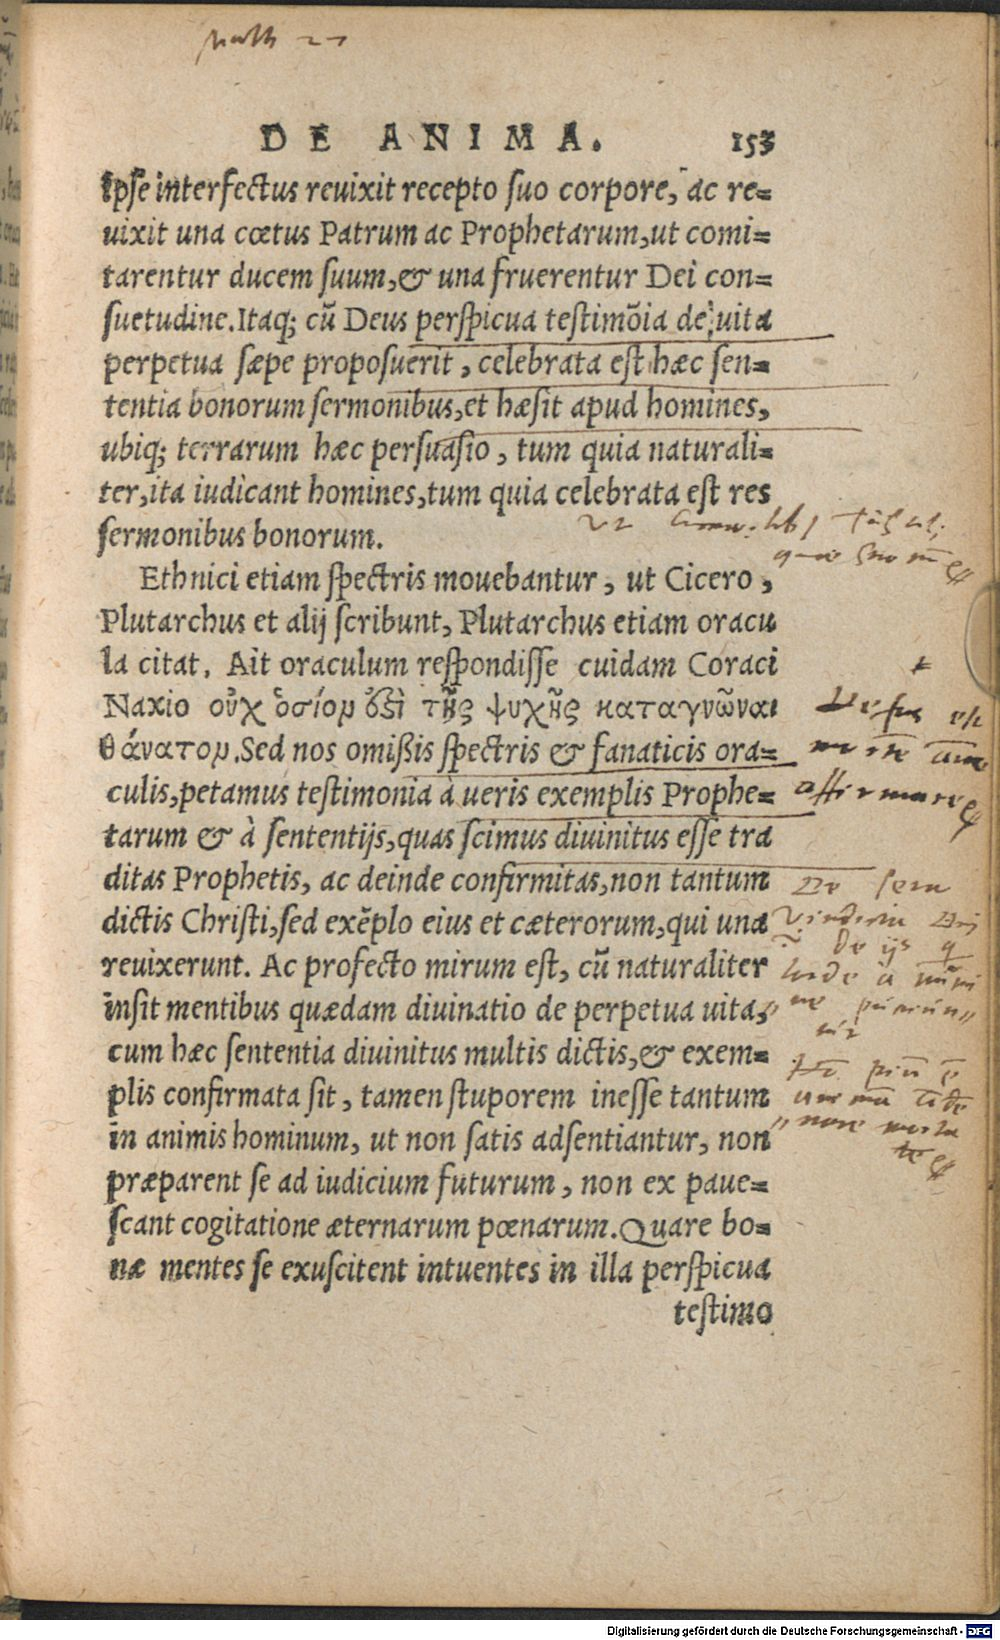 DE ANIMA. 153
Ipse interfectus reuixit recepto suo corpore, ac re=
uixit una cœtus Patrum ac Prophetarum, ut comi=
tarentur ducem suum, & una fruerentur Dei con=
suetudine. Itaq; cū Deus perspicua testimõia de uita
perpetua sæpe proposuerit, celebrata est hæc sen=
tentia bonorum sermonibus, et hæsit apud homines,
ubiq; terrarum hæc persuasio, tum quia naturali=
ter, ita iudicant homines, tum quia celebrata est res
sermonibus bonorum.
Ethnici etiam spectris mouebantur, ut Cicero,
Plutarchus et alij scribunt, Plutarchus etiam oracu
la citat. Ait oraculum respondisse cuidam Coraci
Naxio οὐχ ὅσιόν ὅξὶ τῆς ψυχῆς καταγνῶναι
θάνατον. Sed nos omißis spectris & fanaticis ora=
culis, petamus testimonia à ueris exemplis Prophe=
tarum & à sententijs, quas scimus diuinitus esse tra
ditas Prophetis, ac deinde confirmitas, non tantum
dictis Christi, sed exẽplo eius et cæterorum, qui una
reuixerunt. Ac profecto mirum est, cū naturaliter
insit mentibus quædam diuinatio de perpetua uita,
cum hæc sententia diuinitus multis dictis, & exem=
plis confirmata sit, tamen stuporem inesse tantum
in animis hominum, ut non satis adsentiantur, non
præparent se ad iudicium futurum, non ex paue=
scant cogitatione æternarum pœnarum. Quare bo=
næ mentes se exuscitent intuentes in illa perspicua
testimo
affirmare
Digitalisierung gefördert durch die Deutsche Forschungsgemeinschaft - DFG